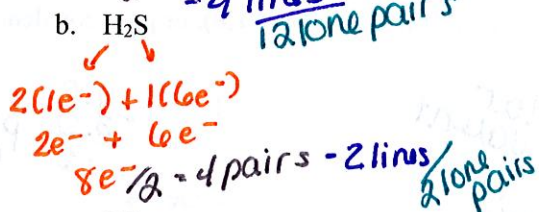 12 lone pairs
b. H₂S
2(1e⁻) + 1(6e⁻)
2e⁻ + 6e⁻
8e⁻/2 = 4 pairs - 2 lines
2 lone pairs